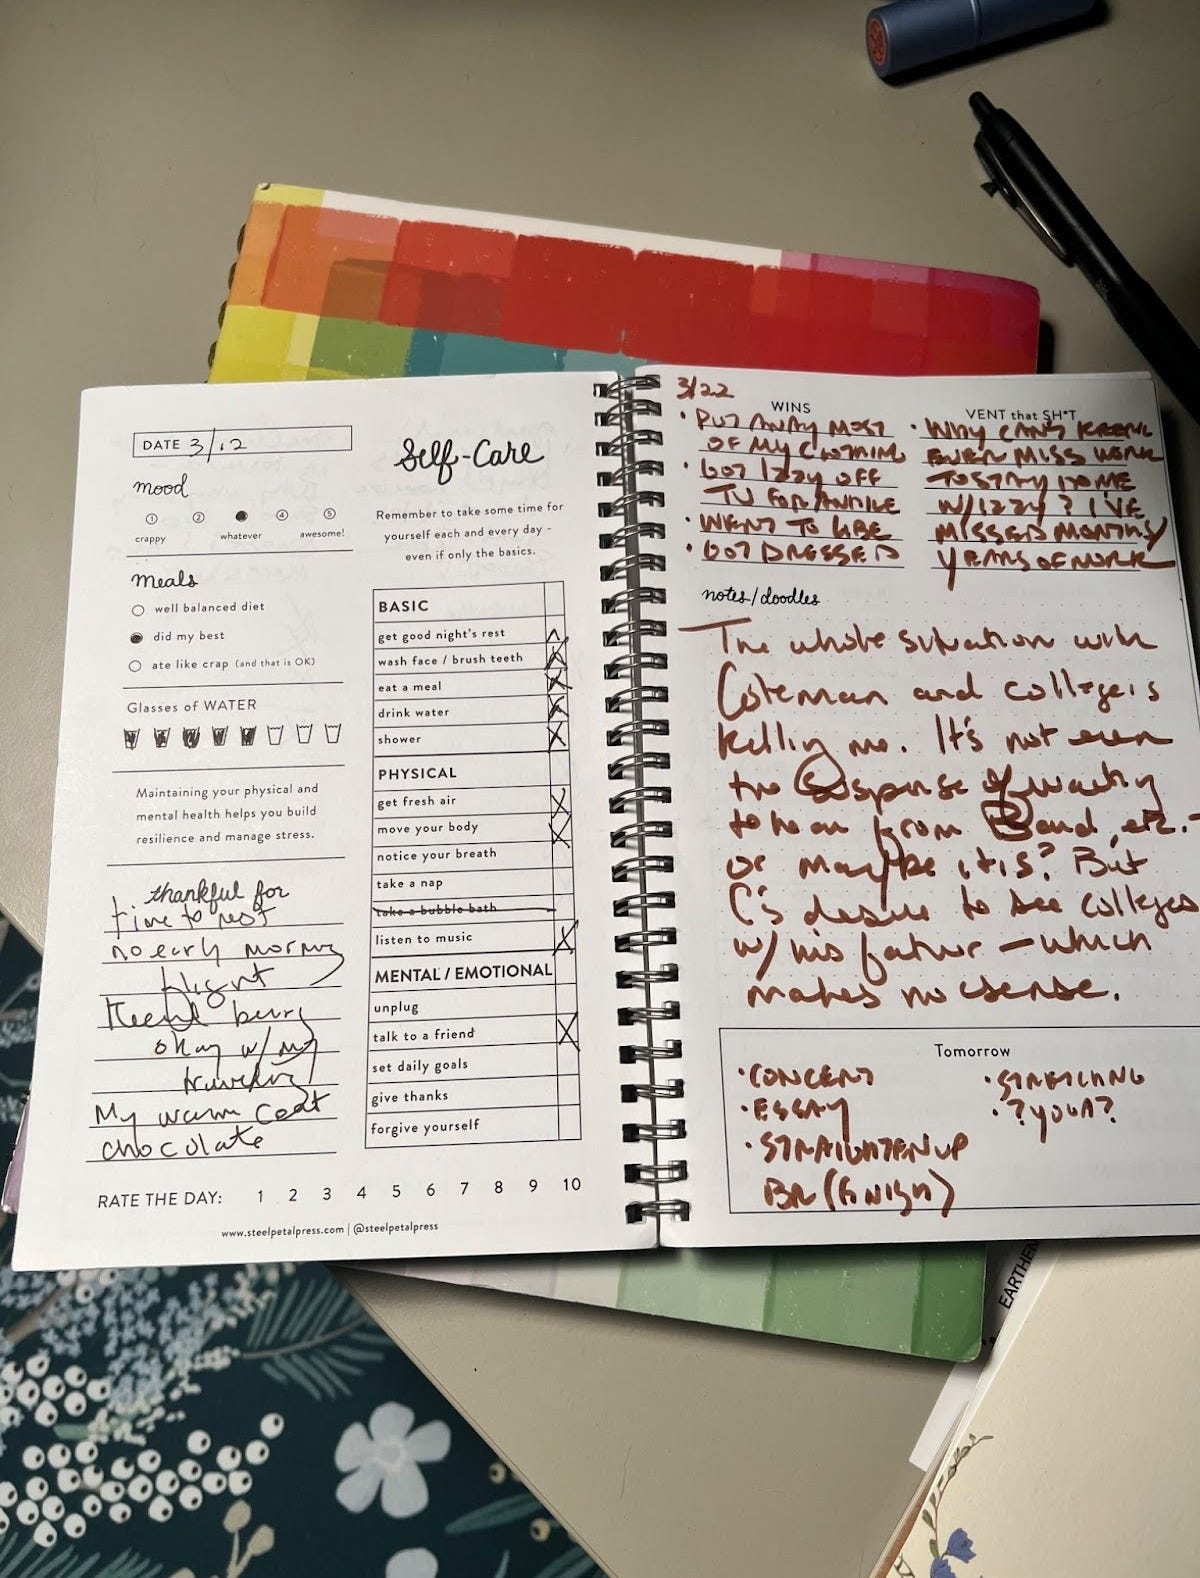 DATE 3/12
Self-Care
mood
1 2 4 5
crappy whatever awesome!
Remember to take some time for
yourself each and every day -
even if only the basics.
meals
well balanced diet
did my best
ate like crap (and that is OK)
Glasses of WATER
Maintaining your physical and
mental health helps you build
resilience and manage stress.
thankful for
time to rest
no early morning
flight
being
okay w/ my
traveling
My warm coat
chocolate
BASIC
get good night's rest
wash face / brush teeth
eat a meal
drink water
shower
PHYSICAL
get fresh air
move your body
notice your breath
take a nap
take a bubble bath
listen to music
MENTAL / EMOTIONAL
unplug
talk to a friend
set daily goals
give thanks
forgive yourself
RATE THE DAY: 1 2 3 4 5 6 7 8 9 10
www.steelpetalpress.com | @steelpetalpress
3/22
WINS
• PUT AWAY MOST
OF MY CLOTHING
• GOT IZZY OFF
TV FOR AWHILE
• WENT TO
• GOT DRESSED
VENT that SH*T
• WHY CAN'T
EVER MISS WORK
TO STAY HOME
W/ IZZY? I'VE
MISSED MONTHS/
YEARS OF WORK
notes/doodles
The whole situation with
Coleman and college is
killing me. It's not even
the suspense of waiting
to hear from Bard, etc. -
or maybe it is? But
C's desire to see colleges
w/ his father - which
makes no sense.
Tomorrow
• CONCERT
• ESSAY
• STRAIGHTEN UP
BR (FINISH)
• STRETCHING
• ? YOGA?
EARTHEN